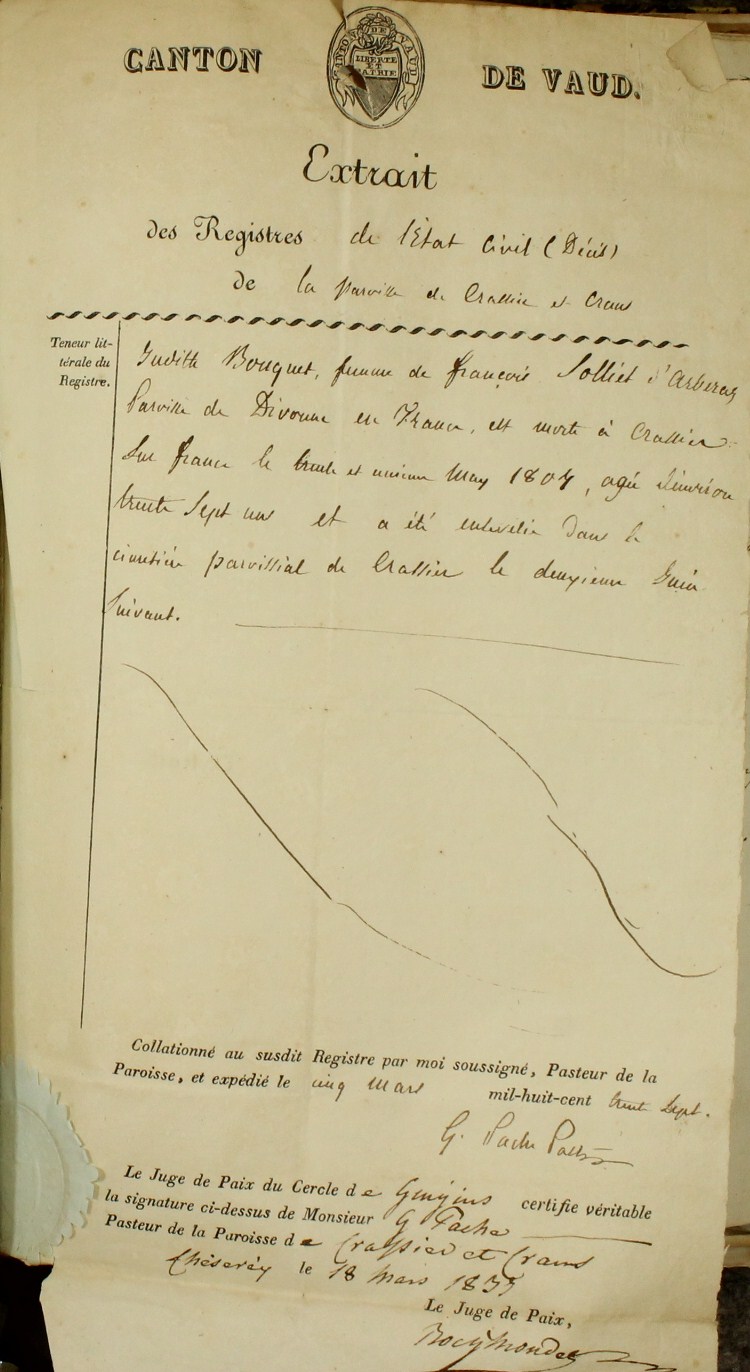 CANTON DE VAUD.
CANTON DE VAUD
LIBERTÉ
ET
PATRIE
Extrait
des Registres de l'Etat Civil (Décès)
de la paroisse de Crassier et Crans
Teneur lit-
térale du
Registre.
Judith Bouquet, femme de françois Solliet d'Arbere
Paroisse de Divonne en France, est morte à Crassier
sur france le trente et unieme May 1807, agée d'environ
trente sept ans et a été ensevelie dans le
cimetière paroissial de Crassier le deuxieme Juin
suivant.
Collationné au susdit Registre par moi soussigné, Pasteur de la
Paroisse, et expédié le cinq Mars mil-huit-cent trente sept.
G. Pache Past
Le Juge de Paix du Cercle de Gingins certifie véritable
la signature ci-dessus de Monsieur G Pache
Pasteur de la Paroisse de Crassier et Crans
Chéserex le 18 Mars 1837
Le Juge de Paix,